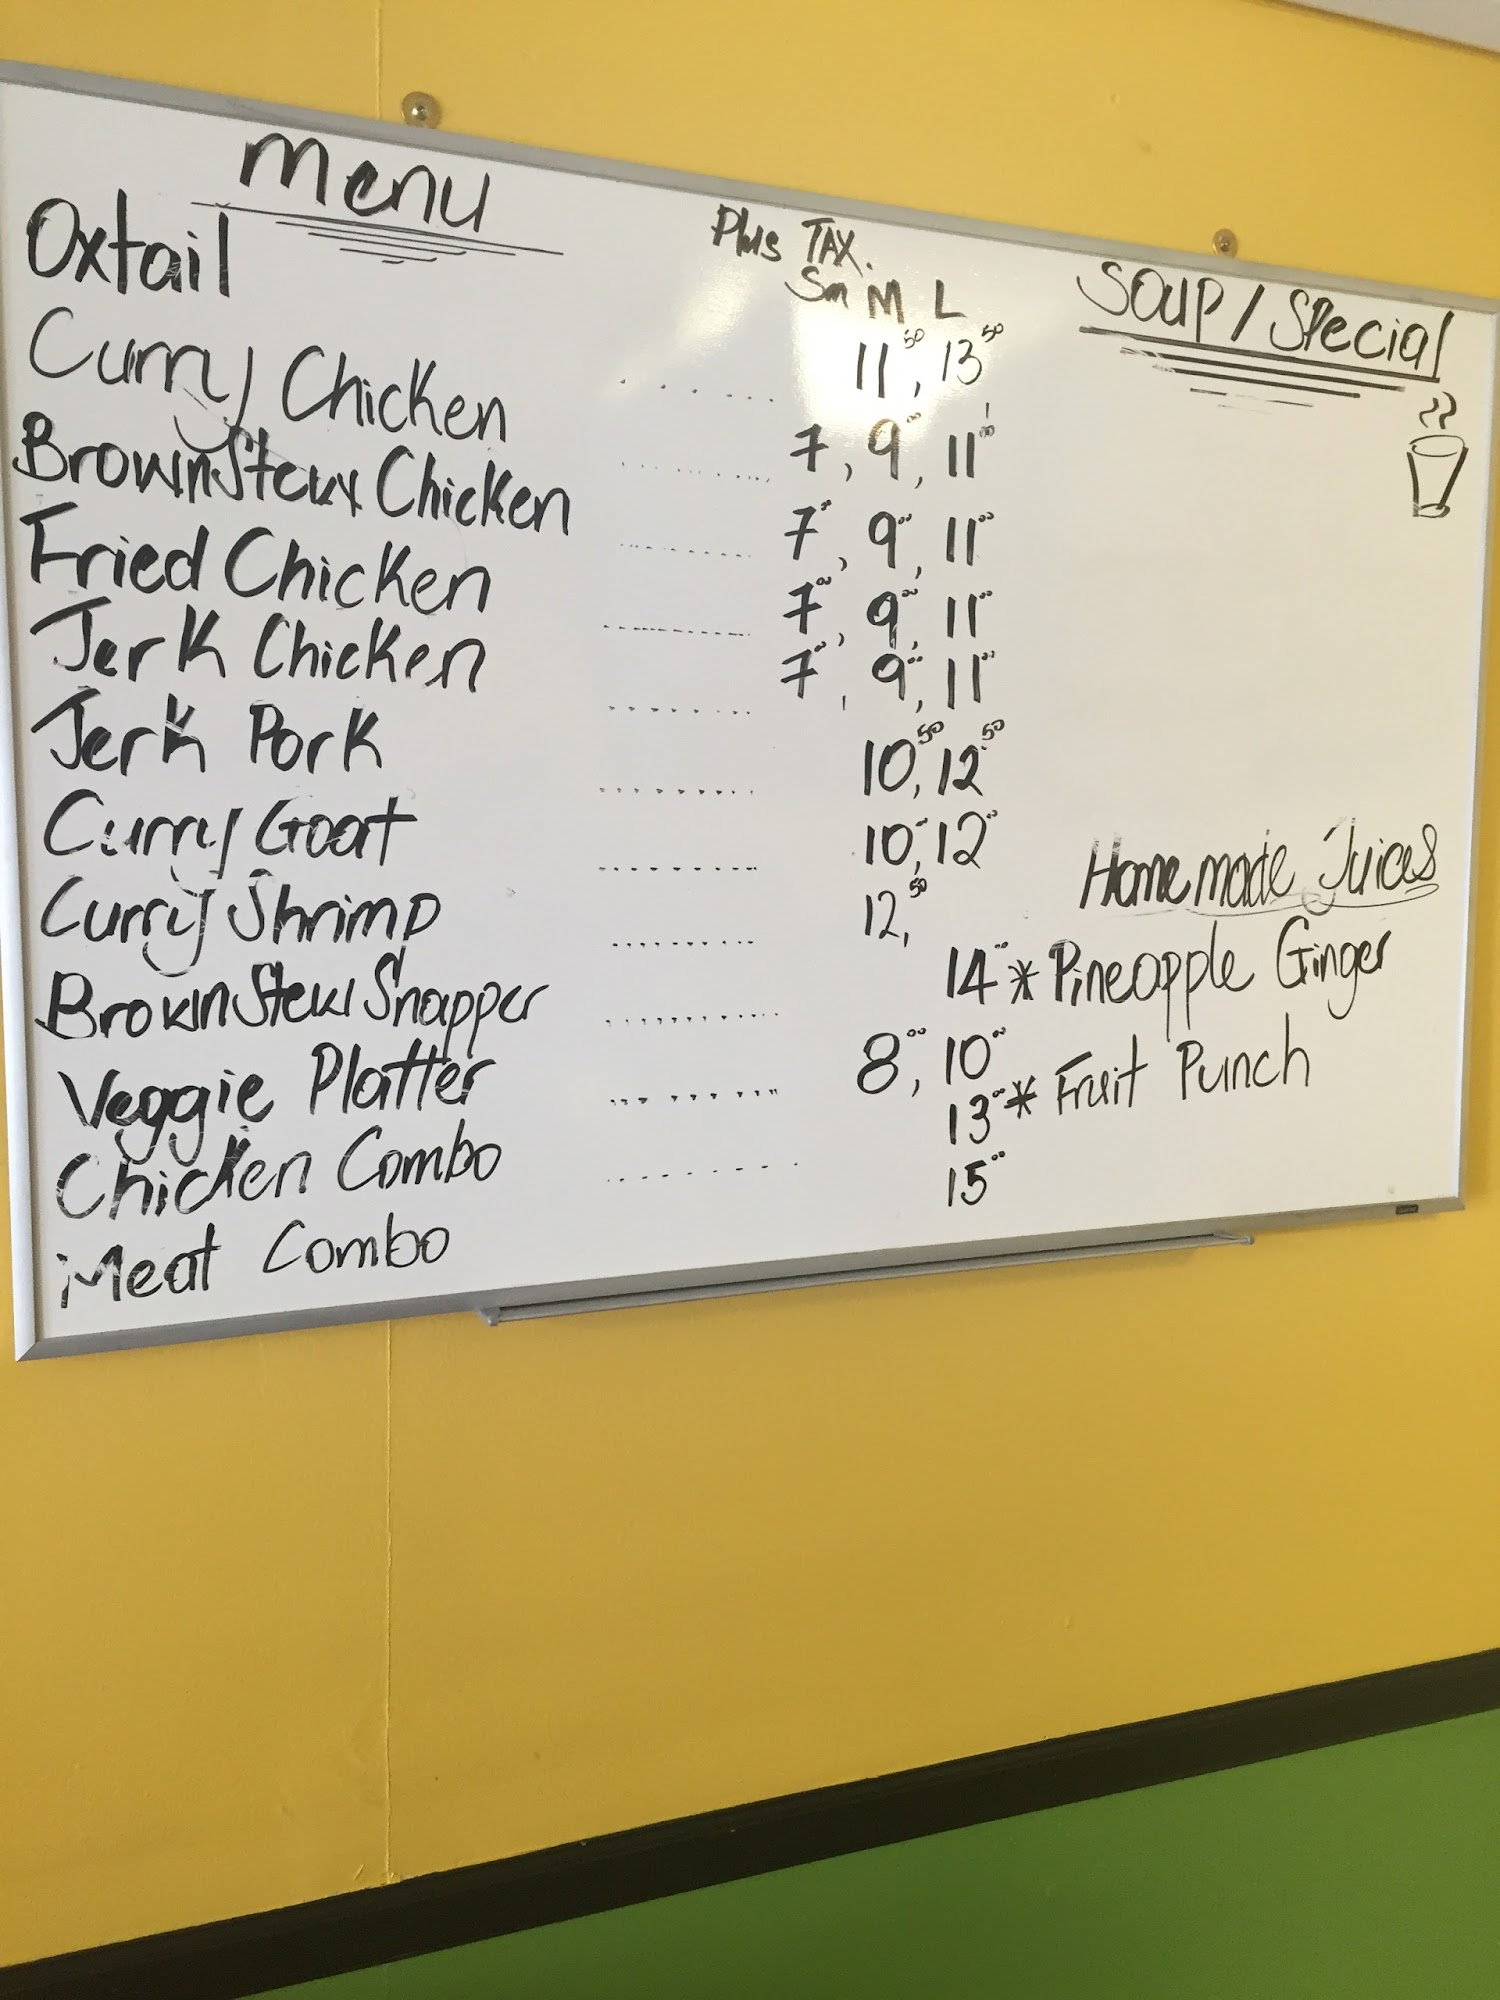 Menu
Plus TAX.
Sm M L
Oxtail 11 50, 13 50
Curry Chicken ............ 7, 9 00, 11 00
Brown Stew Chicken ............ 7 00, 9 00, 11 00
Fried Chicken ............ 7 00, 9 00, 11 00
Jerk Chicken ............ 7 00, 9 00, 11 00
Jerk Pork ............ 10 50, 12 50
Curry Goat ............ 10 00, 12 00
Curry Shrimp ............ 12, 50
Brown Stew Snapper ............ 14 00
Veggie Platter ............ 8 00, 10 00
Chicken Combo ............ 13 00
Meat Combo ............ 15 00
SOUP/Special
Homemade Juices
* Pineapple Ginger
* Fruit Punch